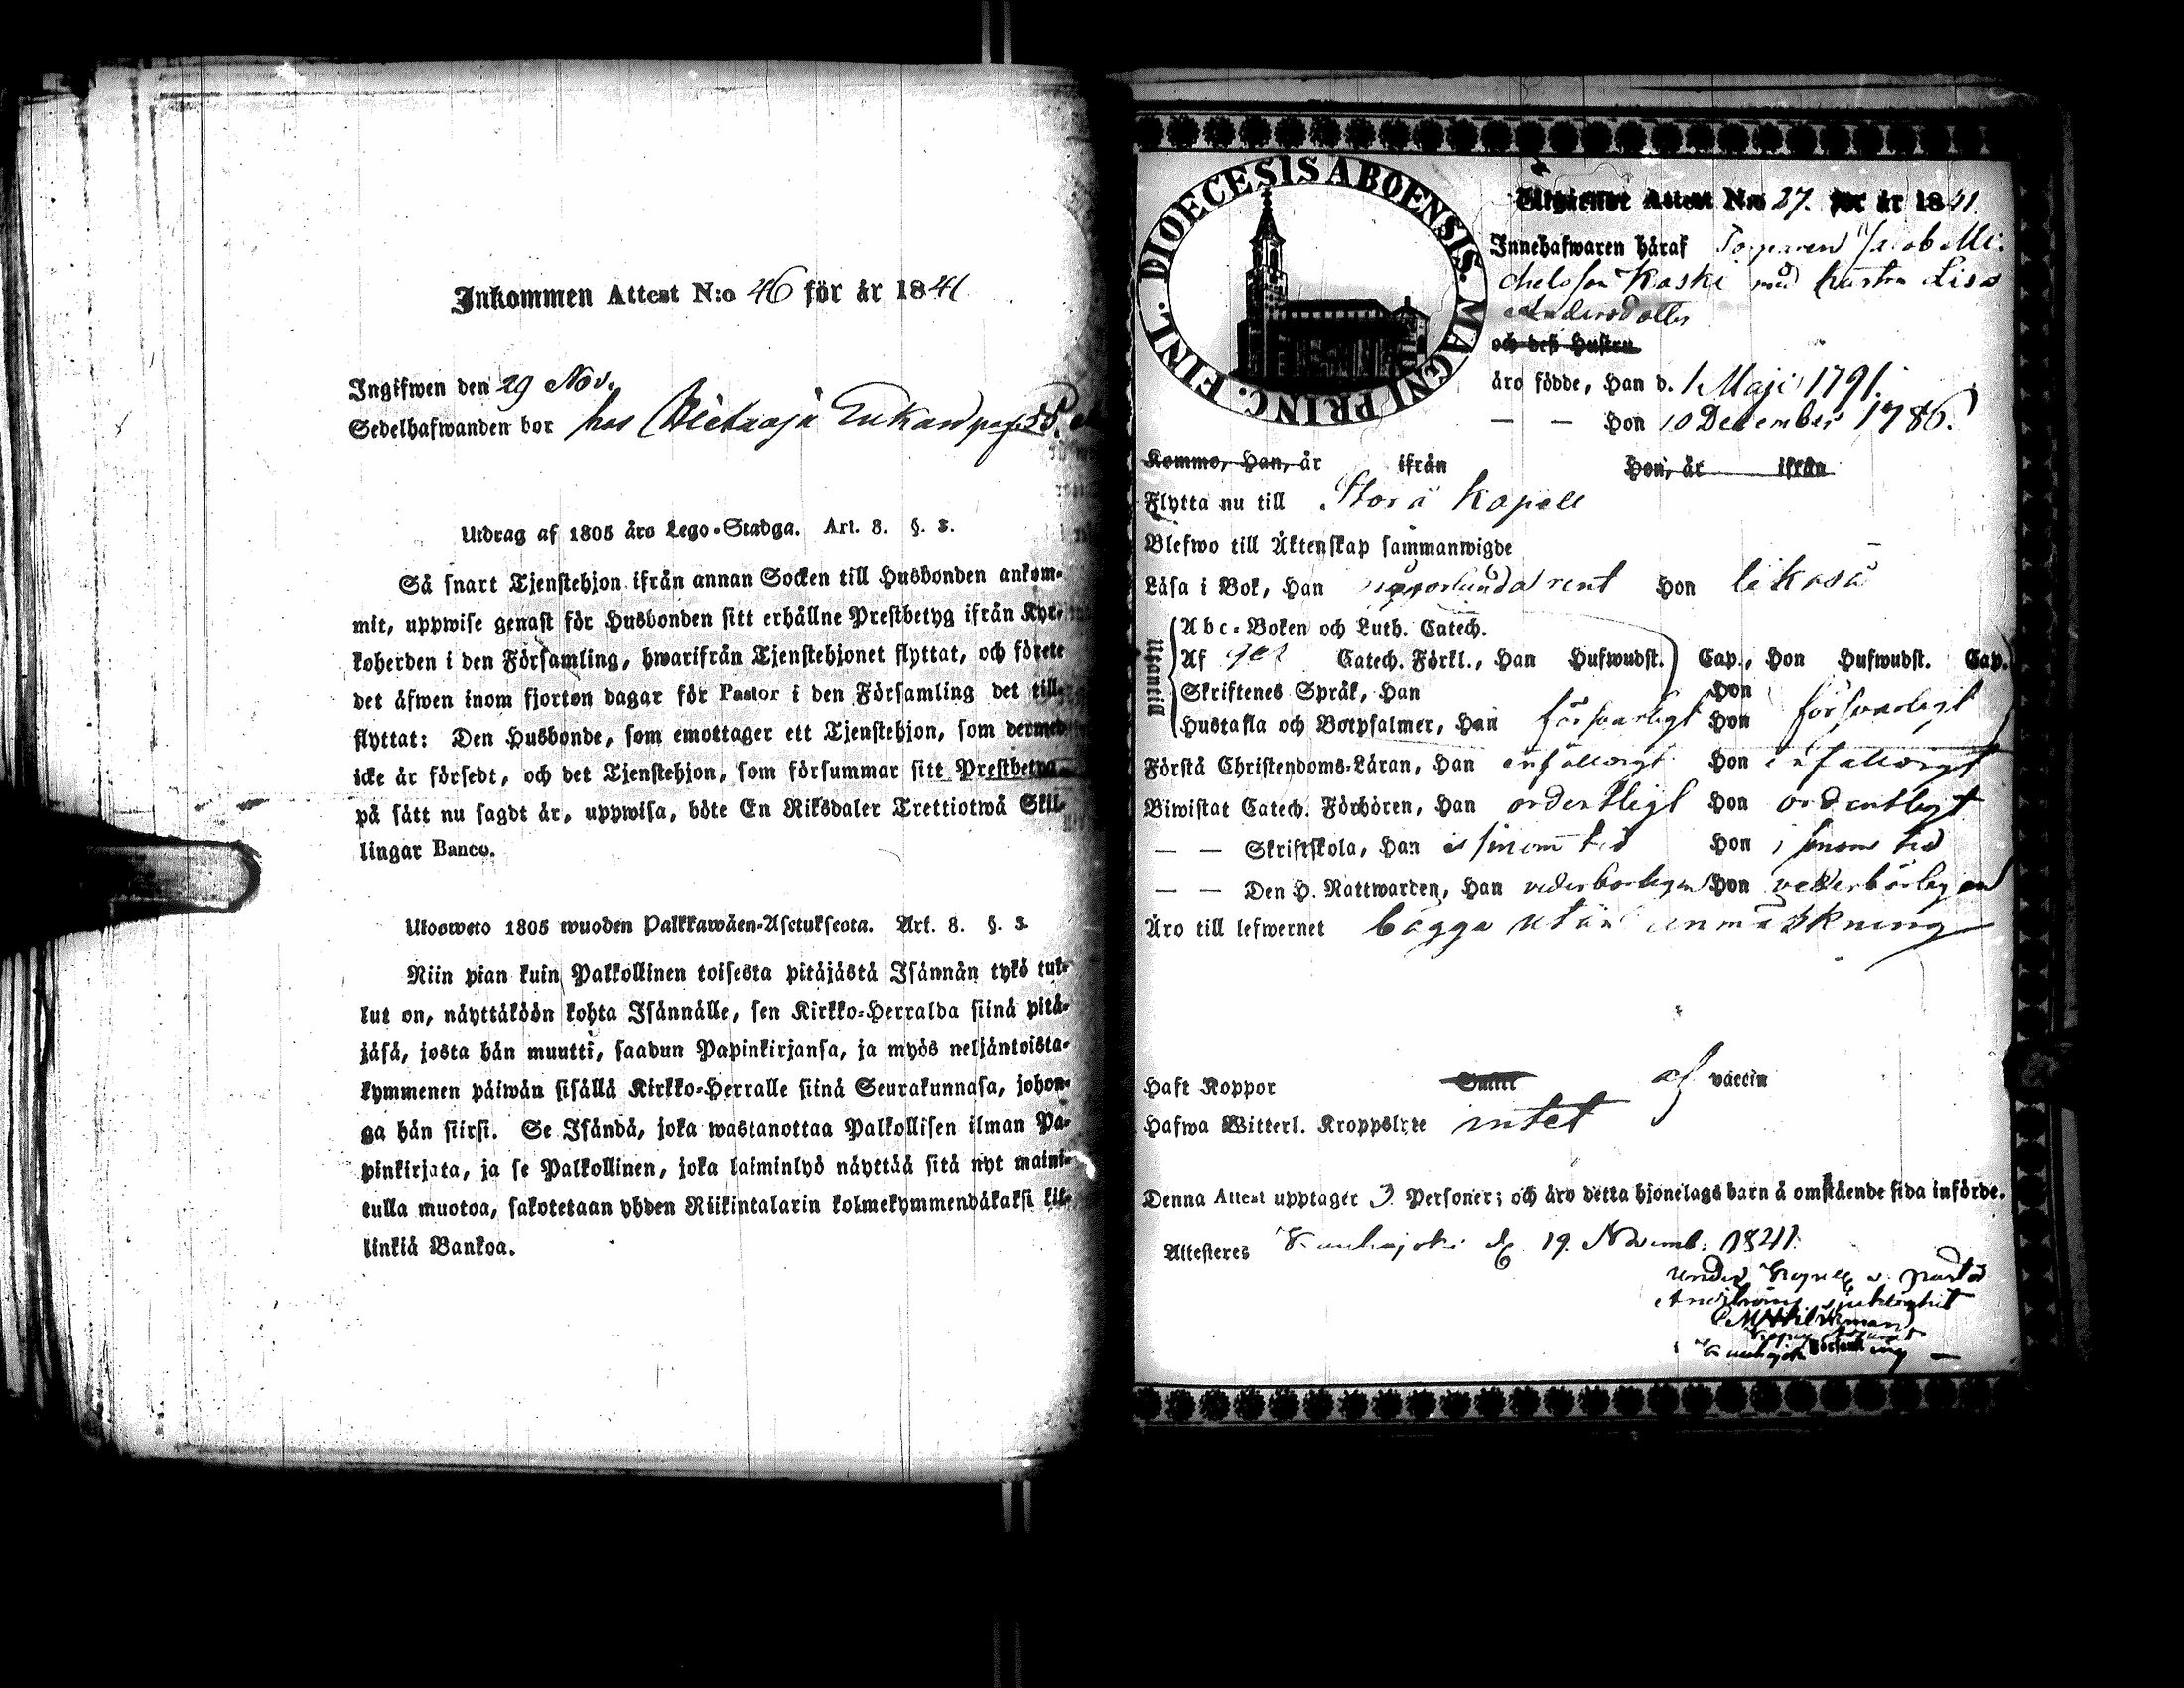 Inkommen Attest N:o 46 för år 1841
Ingifwen den 29 Nov.
Sedelhafwanden bor hos
Utdrag af 1805 års Lego-Stadga. Art. 8. §. 3.
Så snart Tjenstehjon ifrån annan Socken till Husbonden ankom-
mit, uppwise genast för Husbonden sitt erhållne Prestbetyg ifrån Kyr-
koherden i den Församling, hwarifrån Tjenstehjonet flyttat, och förete
det äfwen inom fjorton dagar för Pastor i den Församling det till-
flyttat: Den Husbonde, som emottager ett Tjenstehjon, som dermed
icke är försedt, och det Tjenstehjon, som försummar sitt Prestbetyg
på sätt nu sagdt är, uppwisa, böte En Riksdaler Trettiotwå Skil-
lingar Banco.
Ulosweto 1805 wuoden Palkkawäen-Asetuksesta. Art. 8. §. 3.
Niin pian kuin Palkollinen toisesta pitäjästä Isännän tykö tul-
lut on, näyttäköön kohta Isännälle, sen Kirkko-Herralda siinä pitä-
jäsä, josta hän muutti, saadun Papinkirjansa, ja myös neljäntoista-
kymmenen päiwän sisällä Kirkko-Herralle siinä Seurakunnasa, johon-
ga hän siirsi. Se Isändä, joka wastanottaa Palkollisen ilman Pa-
pinkirjata, ja se Palkollinen, joka laiminlyö näyttää sitä nyt maini-
tulla muotoa, sakotetaan yhden Riikintalarin kolmekymmendäkaksi kil-
linkiä Bankoa.
DIOECESIS ABOENSIS. MAGNI PRINC. FINL.
Utgående Attest N:o 27. för år 1841
Innehafwaren häraf Torparen Jacob Mi-
chelsson Kaski med hustru Lisa
Andersdotter
och deß Hustru
äro födde, Han d. 1 Maji 1791.
— — Hon 10 December 1786.
Kommo, Han, år ifrån Hon, år ifrån
Flytta nu till Storå Kapell
Blefwo till Äktenskap sammanwigde
Läsa i Bok, Han någorlunda rent Hon likaså
Utantill
Abc-Boken och Luth. Catech.
Af Catech. Förkl., Han Hufwudst. Cap., Hon Hufwudst. Cap.
Skriftenes Språk, Han Hon
Hustafla och Botpsalmer, Han försvarligt Hon försvarligt
Förstå Christendoms-Läran, Han enfalldigt Hon enfalldigt
Biwistat Catech. Förhören, Han ordentligt Hon ordentligt
— — Skriftskola, Han i sinom tid Hon i sinom tid
— — Den H. Nattwarden, Han vederbörligen Hon vederbörligen
Äro till lefwernet bägge utan anmärkning
Haft Koppor af vaccin
Hafwa Witterl. Kroppslyte intet
Denna Attest upptager 3 Personer; och äro detta hjonelags barn å omstående sida införde.
Attesteres Kauhajoki d. 19. Novemb. 1841.
under